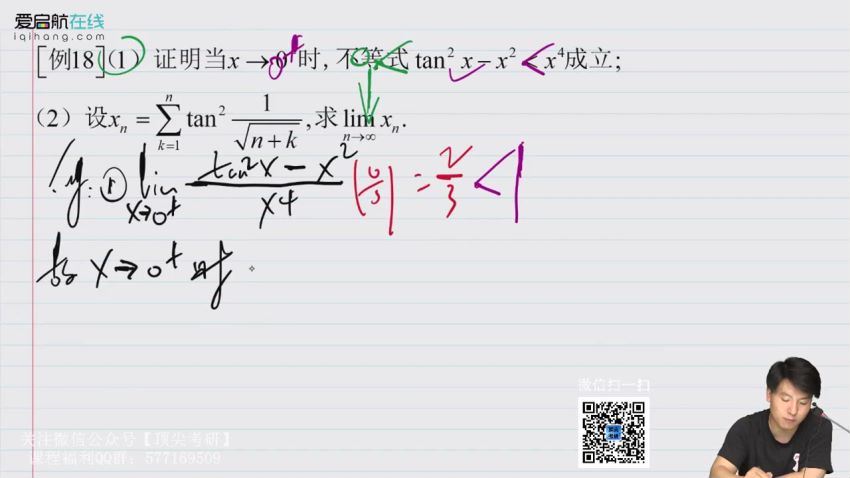 爱启航在线
iqihang.com
[例18](1) 证明当x→0⁺时, 不等式 tan² x − x² < x⁴成立;
(2) 设xₙ = ∑ₖ₌₁ⁿ tan² 1/√(n+k), 求 lim_{n→∞} xₙ.
① lim_{x→0⁺} (tan²x − x²)/x⁴ (0/0) = 2/3 < 1
x→0⁺ 时
微信扫一扫
关注微信公众号【顶尖考研】
课程福利QQ群: 577169509